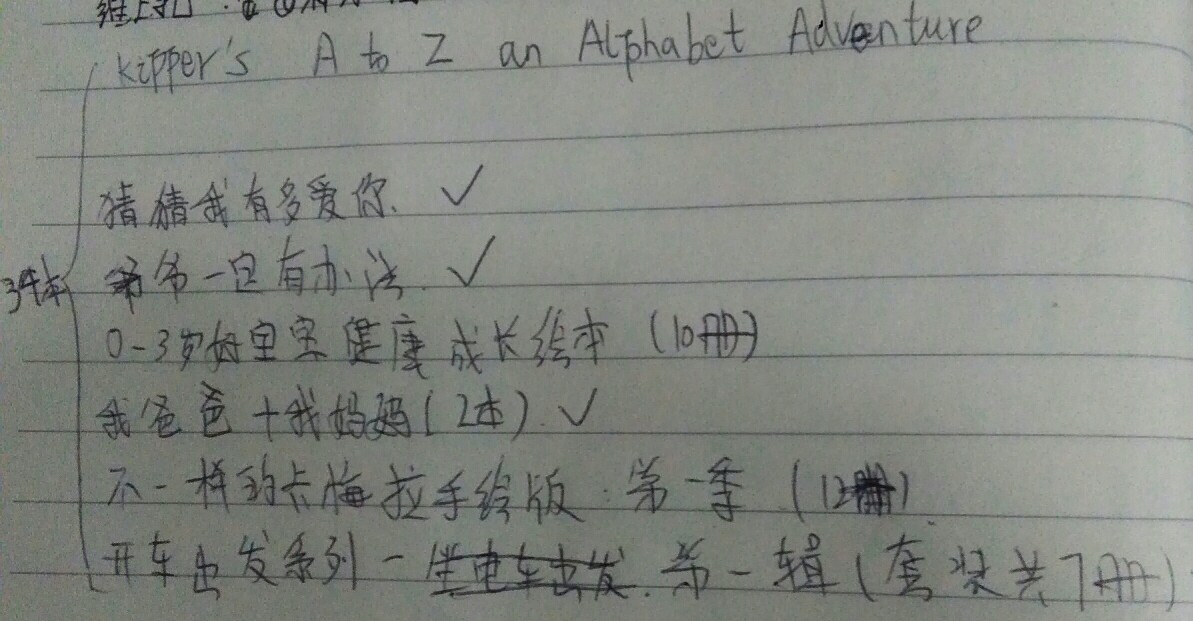 Kipper's A to Z an Alphabet Adventure
猜猜我有多爱你. ✓
爷爷一定有办法. ✓
34本
0-3岁好宝宝健康成长绘本 (10册)
我爸爸+我妈妈(2本). ✓
不一样的卡梅拉手绘版. 第一季 (12册).
开车出发系列-坐电车出发. 第一辑 (套装共7册)